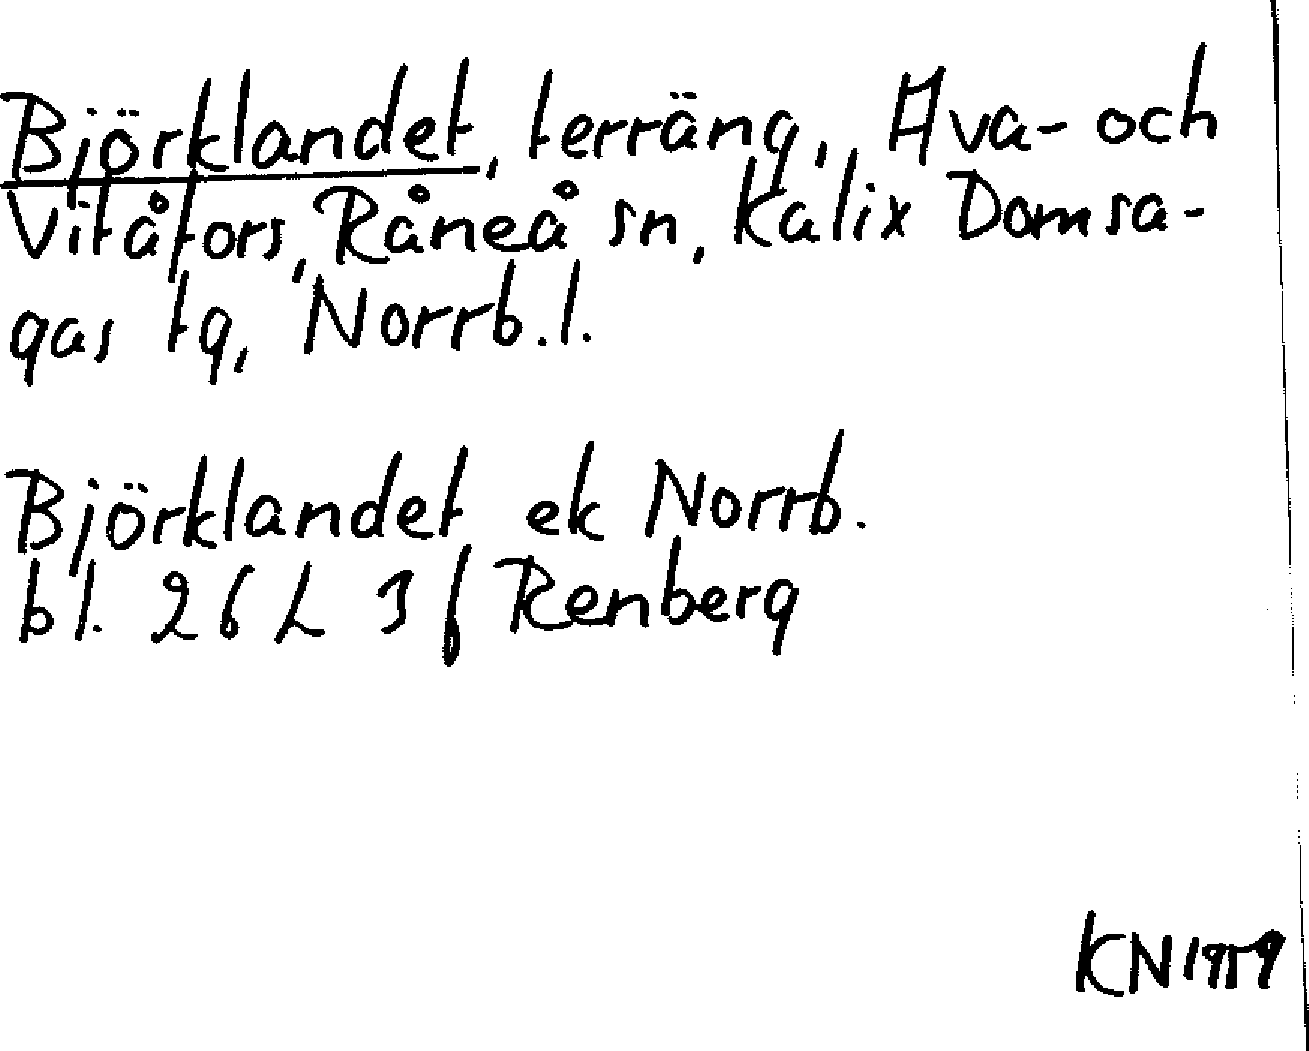 Björklandet, terräng, Ava- och
Vitåfors, Råneå sn, Kalix Domsa-
gas tg, Norrb. l.
Björklandet ek Norrb.
bl. 26 L 3 f Renberg
KN 1959